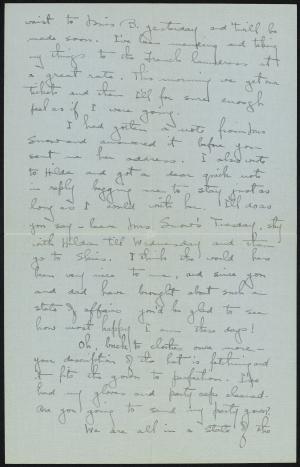 waist to Miss B. yesterday and t'will be
made soon. I've been mending and taking
my things to the French laundress at
a great rate. This morning we get our
tickets and then I'll for sure enough
feel as if I were going.
I had gotten a note from Mrs
Snow and answered it before you
sent me her address. I also wrote
to Hilda and got a dear quick note
in reply begging me to stay just as
long as I could with her. I'll do as
you say - leave Mrs. Snow's Tuesday, stay
with Hilda till Wednesday and then
go to
I think the world has
been very nice to me, and since you
and dad have brought about such a
state of affairs you'd be glad to see
how most happy I am these days!
Oh, back to clothes once more -
your description of the hat is fetching and
it fits the gown to perfection. I've
had my gloves and party cape cleaned.
Are you going to send my party gown?
We are all in a state of the